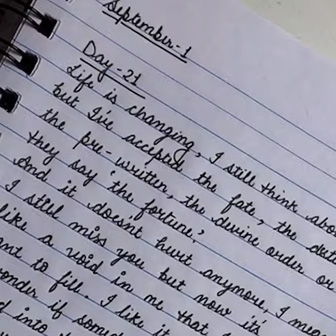 September-1
Day-21
Life is changing, I still think abou
but I've accepted the fate, the dest
the pre-written, the devine order or
they say 'the fortune.'
And it doesnt hurt anymore, I mea
I still miss you but now it's
like a void in me that
ant to fill. I like it
onder if someo
d into